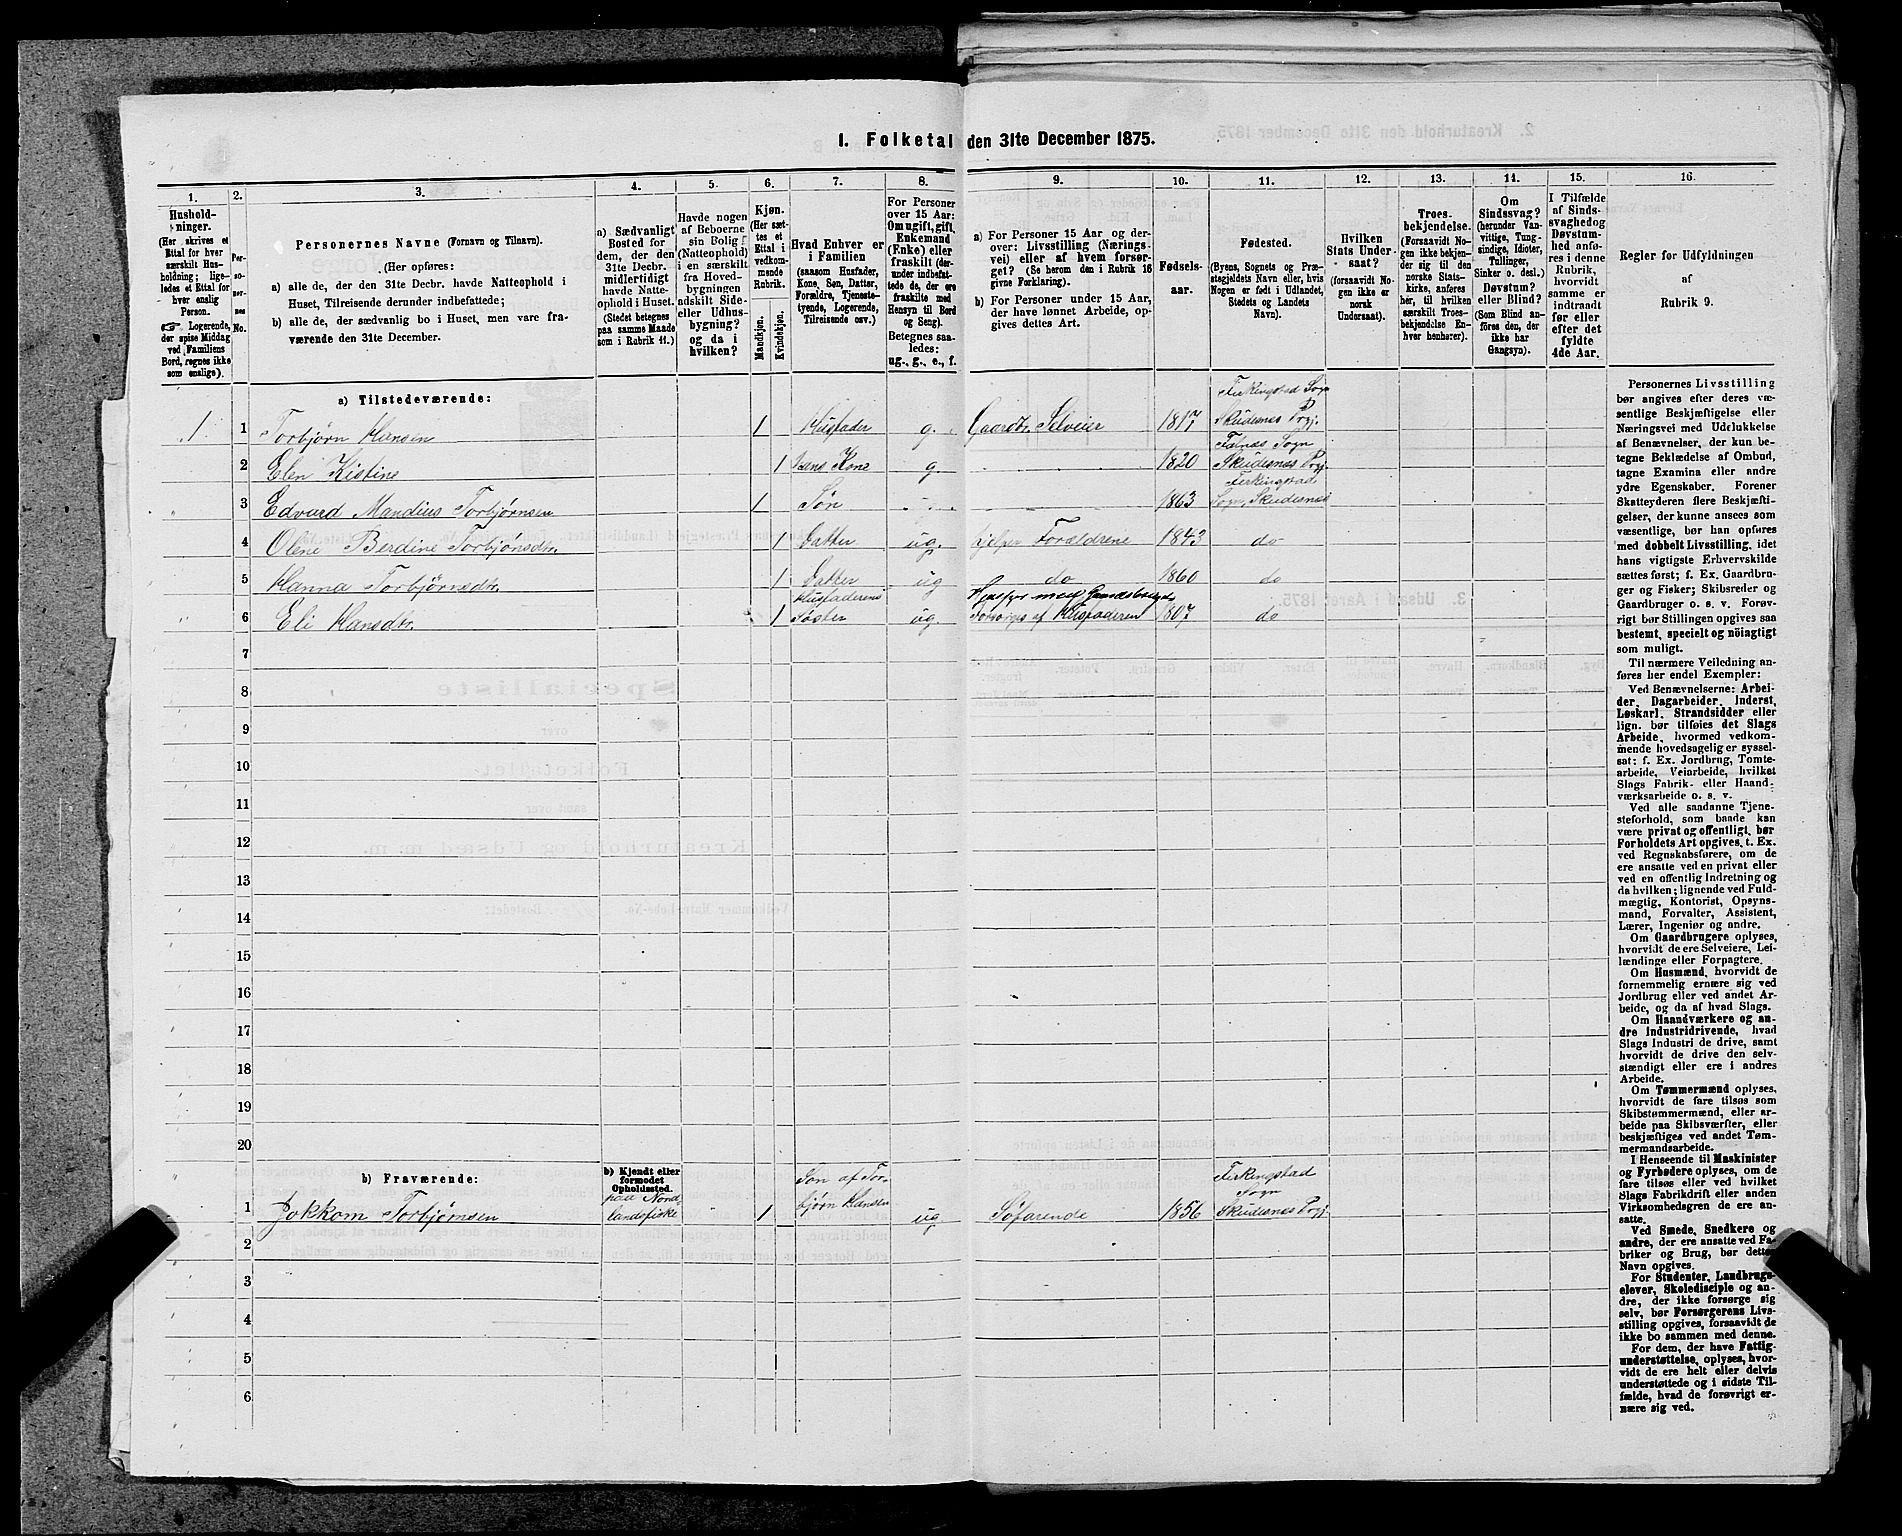 1. Folketal den 31te December 1875.
1.
Hushold-
ninger.
(Her skrives et
Ettal for hver
særskilt Hus-
holdning; lige-
ledes et Ettal for
hver enslig
Person.
☞ Logerende,
der spise Middag
ved Familiens
Bord, regnes ikke
som enslige).
2.
Per-
so-
ner-
nes
No.
3.
Personernes Navne (Fornavn og Tilnavn).
(Her opføres:
a) alle de, der den 31te Decbr. havde Natteophold i
Huset, Tilreisende derunder indbefattede;
b) alle de, der sædvanlig bo i Huset, men vare fra-
værende den 31te December.
4.
a) Sædvanligt
Bosted for
dem, der den
31te Decbr.
midlertidigt
havde Natte-
ophold i Huset.
(Stedet betegnes
paa samme Maade
som i Rubrik 11.)
5.
Havde nogen
af Beboerne
sin Bolig
(Natteophold)
i en særskilt
fra Hoved-
bygningen
adskilt Side-
eller Udhus-
bygning?
og da i
hvilken?
6.
Kjøn.
(Her sæt-
tes et
Ettal i
vedkom-
mende
Rubrik.
Mandkjøn.
Kvindekjøn.
7.
Hvad Enhver er
i Familien
(saasom Husfader,
Kone, Søn, Datter,
Forældre, Tjeneste-
tyende, Logerende,
Tilreisende osv.)
8.
For Personer
over 15 Aar:
Om ugift, gift,
Enkemand
(Enke) eller
fraskilt (der-
under indbefat-
tede de, der ere
fraskilte med
Hensyn til Bord
og Seng).
Betegnes saa-
ledes:
ug., g., e., f.
9.
a) For Personer 15 Aar og der-
over: Livsstilling (Nærings-
vei) eller af hvem forsør-
get? (Se herom den i Rubrik 16
givne Forklaring).
b) For Personer under 15 Aar,
der have lønnet Arbeide, op-
gives dettes Art.
10.
Fødsels-
aar.
11.
Fødested.
(Byens, Sognets og Præ-
stegjeldets Navn eller, hvis
Nogen er født i Udlandet,
Stedets og Landets
Navn).
12.
Hvilken
Stats Under-
saat?
(forsaavidt No-
gen ikke er
norsk
Undersaat).
13.
Troes-
bekjendelse.
(Forsaavidt No-
gen ikke bekjen-
der sig til den
norske Stats-
kirke, anføres
her, til hvilken
særskilt Troes-
bekjendelse En-
hver henhører).
14.
Om
Sindssvag?
(herunder Van-
vittige, Tung-
sindige, Idioter,
Tullinger,
Sinker o. desl.)
Døvstum?
eller Blind?
(Som Blind an-
føres den, der
ikke har
Gangsyn).
15.
I Tilfælde
af Sinds-
svaghed og
Døvstum-
hed anfø-
res i denne
Rubrik,
hvorvidt
samme er
indtraadt
før eller
efter det
fyldte
4de Aar.
16.
Regler for Udfyldningen
af
Rubrik 9.
a) Tilstedeværende:
1 1 Torbjørn Hansen 1 Husfader g. Gaardbr. Selveier 1817 Ferkingstad Sogn Skudesnes Prgj.
2 Elen Kistine 1 hans Kone g. 1820 Falnæs Sogn Skudesnes Prgj
3 Edvard Mandius Torbjørnsen 1 Søn 1863 Ferkingstad Sogn, Skudesnes
4 Olene Berdine Torbjønsdtr. 1 Datter ug. hjelper Forældrene 1843 do
5 Hanna Torbjørnsdtr. 1 Datter ug do 1860 do
6 Eli Hansdtr. 1 Husfaderens Søster ug. Hjelper med Gaardsbruget Forsørges af Husfaderen 1807 do
7
8
9
10
11
12
13
14
15
16
17
18
19
20
b) Fraværende:
b) Kjendt eller
formodet
Opholdssted.
1 Jokkom Torbjørnsen paa Nord- landsfiske 1 Søn af Tor- bjørn Hansen ug Søfarende 1856 Ferkingstad Sogn Skudesnes Prgj
2
3
4
5
6
Personernes Livsstilling
bør angives efter deres væ-
sentlige Beskjæftigelse eller
Næringsvei med Udelukkelse
af Benævnelser, der kun be-
tegne Beklædelse af Ombud,
tagne Examina eller andre
ydre Egenskaber. Forener
Skatteyderen flere Beskjæfti-
gelser, der kunne ansees som
væsentlige, bør han opføres
med dobbelt Livsstilling, idet
hans vigtigste Erhvervskilde
sættes først; f. Ex. Gaardbru-
ger og Fisker; Skibsreder og
Gaardbruger o. s. v. Forøv-
rigt bør Stillingen opgives saa
bestemt, specielt og nöiagtigt
som muligt.
Til nærmere Veiledning an-
føres her endel Exempler:
Ved Benævnelserne: Arbei-
der, Dagarbeider, Inderst,
Løskarl, Strandsidder eller
lign. bør tilføies det Slags
Arbeide, hvormed vedkom-
mende hovedsagelig er syssel-
sat; f. Ex. Jordbrug, Tomte-
arbeide, Veiarbeide, hvilket
Slags Fabrik- eller Haand-
værksarbeide o. s. v.
Ved alle saadanne Tjene-
steforhold, som baade kan
være privat og offentligt, bør
Forholdets Art opgives, t. Ex.
ved Regnskabsførere, om de
ere ansatte ved en privat eller
ved en offentlig Indretning og
da hvilken; lignende ved Fuld-
mægtig, Kontorist, Opsyns-
mand, Forvalter, Assistent,
Lærer, Ingeniør og andre.
Om Gaardbrugere oplyses,
hvorvidt de ere Selveiere, Lei-
lændinge eller Forpagtere.
Om Husmænd, hvorvidt de
fornemmelig ernære sig ved
Jordbrug eller ved andet Ar-
beide, og da af hvad Slags.
Om Haandværkere og an-
dre Industridrivende, hvad
Slags Industri de drive, samt
hvorvidt de drive den selv-
stændigt eller ere i andres
Arbeide.
Om Tømmermænd oplyses,
hvorvidt de fare tilsøs som
Skibstømmermænd, eller ar-
beide paa Skibsværfter, eller
beskjæftiges ved andet Tøm-
mermandsarbeide.
I Henseende til Maskinister
og Fyrbødere oplyses, om de
fare tilsøs eller ved hvilket
Slags Fabrikdrift eller anden
Virksomhedsgren de ere an-
satte.
Ved Smede, Snedkere og
andre, der ere ansatte ved Fa-
briker og Brug, bør dettes
Navn opgives.
For Studenter, Landbrugs-
elever, Skoledisciple og an-
dre, der ikke forsørge sig
selv, bør Forsørgerens Livs-
stilling opgives, forsaavidt de
ikke bo sammen med denne.
For dem, der have Fattig-
understøttelse, oplyses, hvor-
vidt de ere helt eller delvis
understøttede og i sidste Til-
fælde, hvad de forøvrigt er-
nære sig ved.